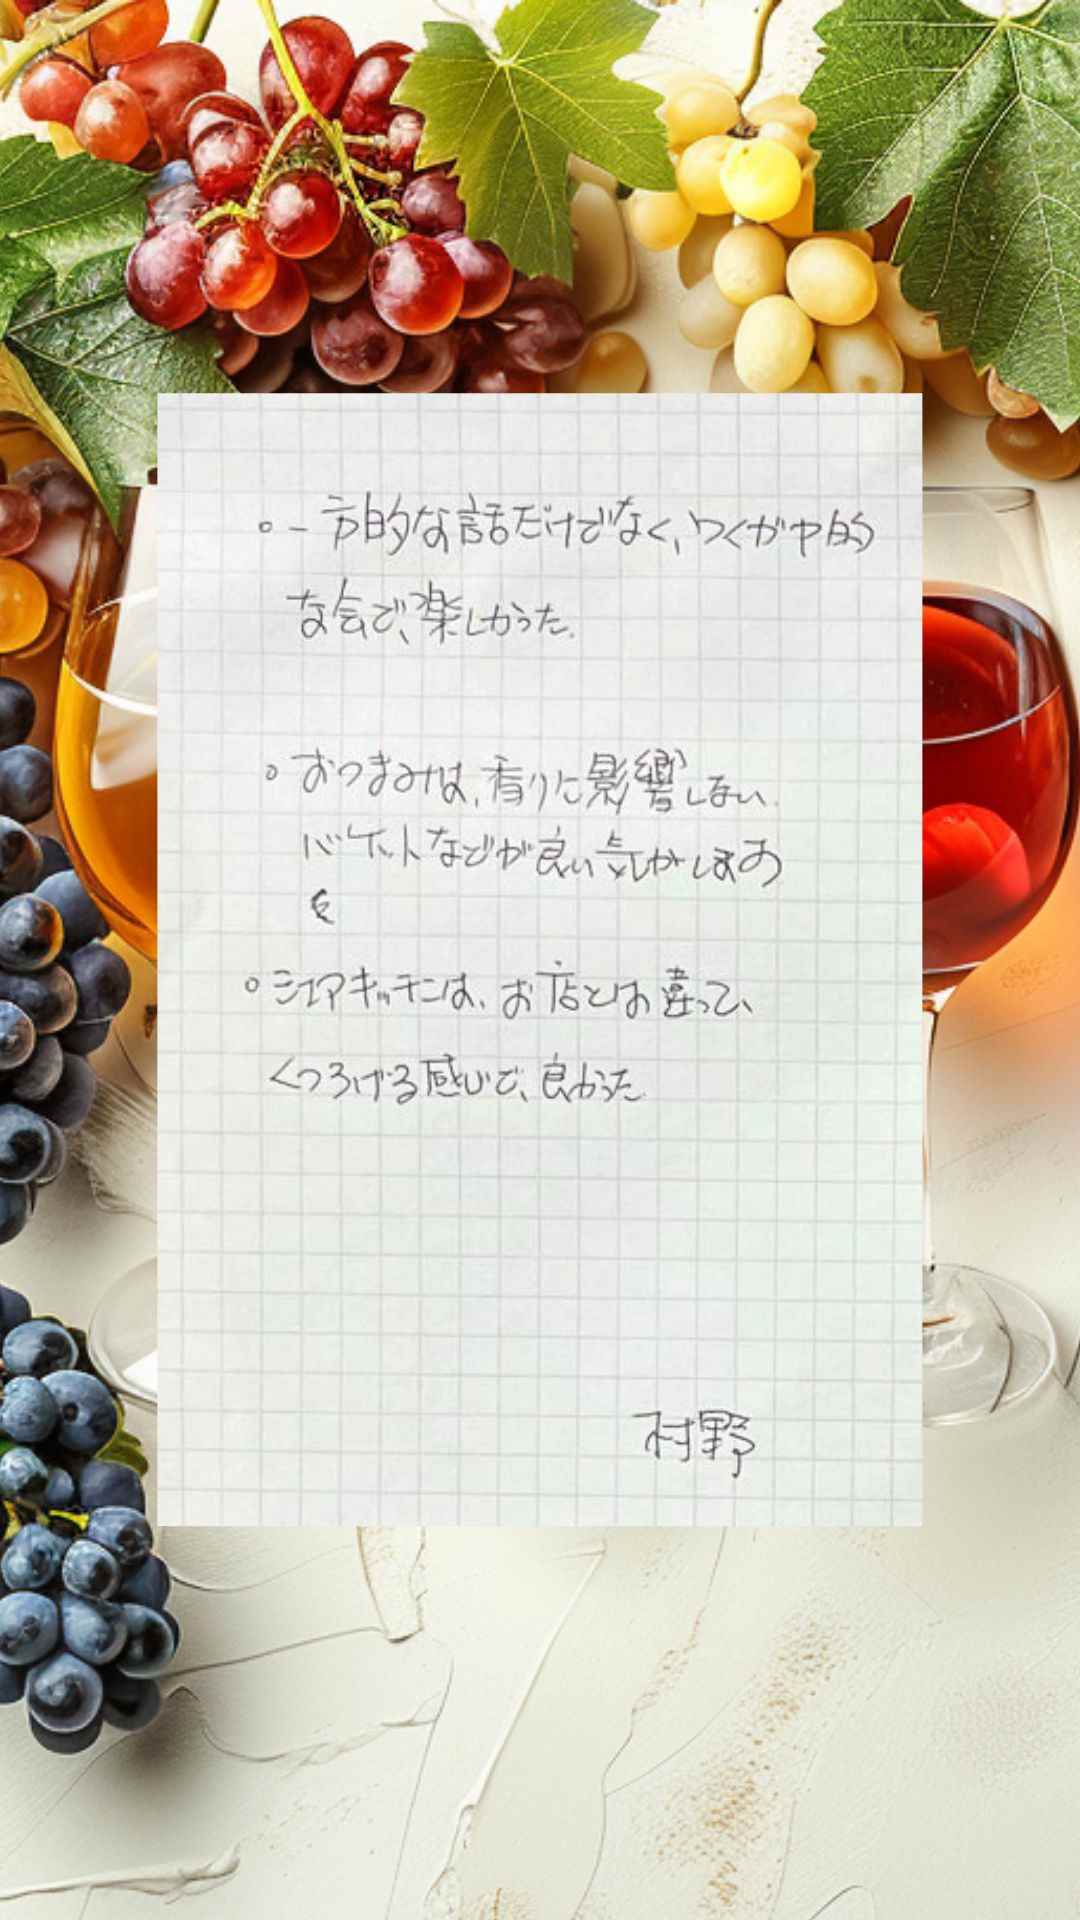 。一方的な話だけでなく、つくが中的
な会で、楽しかった。
。おつまみは、香りに影響しない
バケットなどが良い気がします
。シェアキッチンは、お店とは違って、
くつろげる感じで、良かった
村野